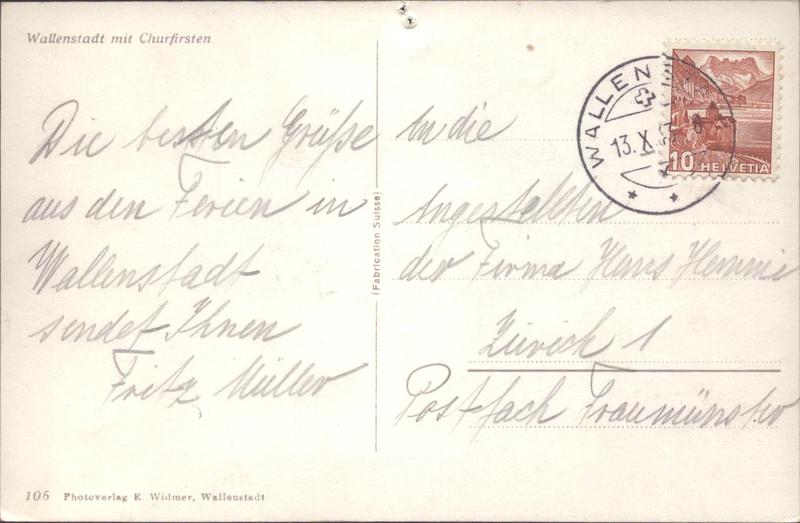 Wallenstadt mit Churfirsten
Die besten Grüße
aus den Ferien in
Wallenstadt
sendet Ihnen
Fritz Müller
106 Photoverlag E. Widmer, Wallenstadt
(Fabrication Suisse)
WALLEN
13. X.
10 HELVETIA
An die
Angestellten
der Firma Hans
Zürich 1
Postfach Fraumünster